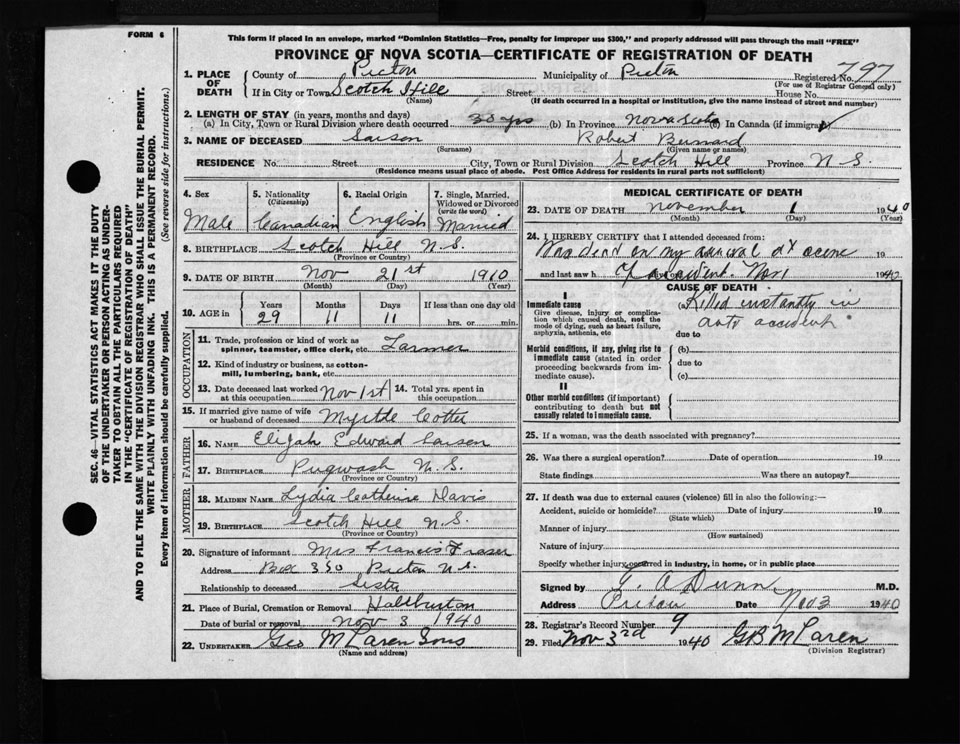 FORM 6
This form if placed in an envelope, marked "Dominion Statistics—Free, penalty for improper use $300," and properly addressed will pass through the mail "FREE"
PROVINCE OF NOVA SCOTIA—CERTIFICATE OF REGISTRATION OF DEATH
1. PLACE OF DEATH
County of Pictou Municipality of Pictou Registered No. 797
(For use of Registrar General only)
If in City or Town Scotch Hill Street House No.
(Name) (If death occurred in a hospital or institution, give the name instead of street and number)
2. LENGTH OF STAY (in years, months and days)
(a) In City, Town or Rural Division where death occurred 30 yrs (b) In Province Nova Scotia (c) In Canada (if immigrant)
3. NAME OF DECEASED Carson Robert Bernard
(Surname) (Given name or names)
RESIDENCE No. Street City, Town or Rural Division Scotch Hill Province N S.
(Residence means usual place of abode. Post Office Address for residents in rural parts not sufficient)
4. Sex Male
5. Nationality (Citizenship) Canadian
6. Racial Origin English
7. Single, Married, Widowed or Divorced (write the word) Married
8. BIRTHPLACE Scotch Hill N.S.
(Province or Country)
9. DATE OF BIRTH Nov 21st 1910
(Month) (Day) (Year)
10. AGE in Years 29 Months 11 Days 11 If less than one day old hrs. or min.
OCCUPATION
11. Trade, profession or kind of work as spinner, teamster, office clerk, etc. Farmer
12. Kind of industry or business, as cotton-mill, lumbering, bank, etc.
13. Date deceased last worked at this occupation Nov 1st
14. Total yrs. spent in this occupation
15. If married give name of wife or husband of deceased Myrtle Cotter
FATHER
16. NAME Elijah Edward Carson
17. BIRTHPLACE Pugwash N.S.
(Province or Country)
MOTHER
18. MAIDEN NAME Lydia Catherine Davis
19. BIRTHPLACE Scotch Hill N.S.
(Province or Country)
20. Signature of informant Mrs Francis Fraser
Address Box 350 Pictou N.S.
Relationship to deceased Sister
21. Place of Burial, Cremation or Removal Haliburton
Date of burial or removal Nov 3 1940
22. UNDERTAKER Geo McLaren Sons
(Name and address)
MEDICAL CERTIFICATE OF DEATH
23. DATE OF DEATH November 1 1940
(Month) (Day) (Year)
24. I HEREBY CERTIFY that I attended deceased from:
Was dead on my arrival at scene 19
and last saw h of accident. Nov 1 1940
CAUSE OF DEATH
I
Immediate cause
Give disease, injury or complication which caused death, not the mode of dying, such as heart failure, asphyxia, asthenia, etc
(a) Killed instantly in
auto accident
due to
Morbid conditions, if any, giving rise to immediate cause (stated in order proceeding backwards from immediate cause).
(b)
due to
(c)
II
Other morbid conditions (if important) contributing to death but not causally related to immediate cause.
25. If a woman, was the death associated with pregnancy?
26. Was there a surgical operation? Date of operation 19
State findings Was there an autopsy?
27. If death was due to external causes (violence) fill in also the following:—
Accident, suicide or homicide? Date of injury 19
(State which)
Manner of injury
(How sustained)
Nature of injury
Specify whether injury occurred in industry, in home, or in public place
Signed by G. A Dunn M.D.
Address Pictou Date Nov 3 1940
28. Registrar's Record Number 9
29. Filed Nov 3rd 1940 GB McLaren
(Division Registrar)
SEC. 46—VITAL STATISTICS ACT MAKES IT THE DUTY
OF THE UNDERTAKER OR PERSON ACTING AS UNDER-
TAKER TO OBTAIN ALL THE PARTICULARS REQUIRED
IN THE "CERTIFICATE OF REGISTRATION OF DEATH"
AND TO FILE THE SAME WITH THE DIVISION REGISTRAR WHO SHALL ISSUE THE BURIAL PERMIT.
WRITE PLAINLY WITH UNFADING INK. THIS IS A PERMANENT RECORD.
Every item of information should be carefully supplied. (See reverse side for instructions.)